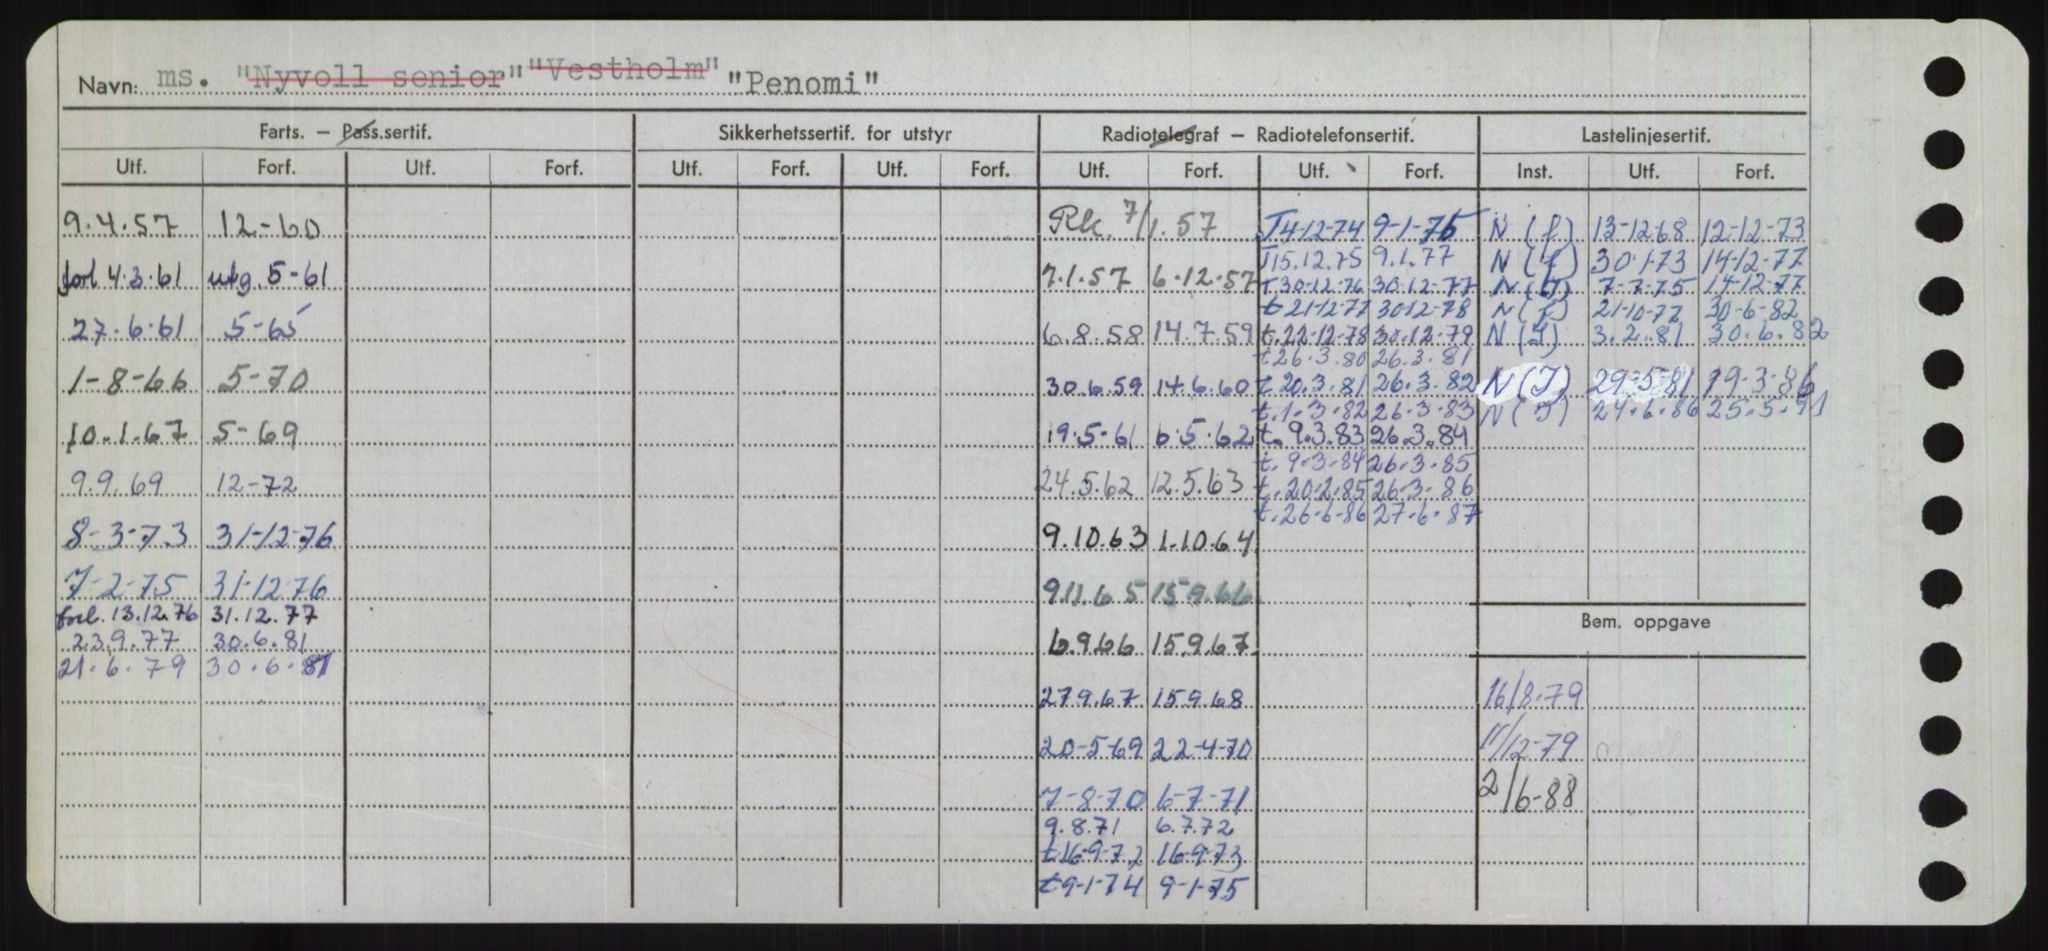 Navn: ms. "Nyvoll senior" "Vestholm" "Penomi"
Farts. – Pass.sertif. Sikkerhetssertif. for utstyr Radiotelegraf – Radiotelefonsertif. Lastelinjesertif.
Utf. Forf. Utf. Forf. Utf. Forf. Utf. Forf. Utf. Forf. Utf. Forf. Inst. Utf. Forf.
9.4.57 12-60
forl 4.3.61 utg. 5-61
27.6.61 5-65
1-8-66 5-70
10.1.67 5-69
9.9.69 12-72
8-3-73 31-12-76
7-2-75 31-12-76
forl. 13.12.76 31.12.77
23.9.77 30.6.81
21.6.79 30.6.81
Rk. 7/1.57
7.1.57 6.12.57
6.8.58 14.7.59
30.6.59 14.6.60
19.5-61 6.5.62
24.5.62 12.5.63
9.10.63 1.10.64
9.11.65 15.9.66
6.9.66 15.9.67
27.9.67 15.9.68
20-5-69 22-4-70
7-8-70 6-7-71
9.8.71 6.7.72
t16-9-72 16-9-73
t9-1-74 9-1-75
T4-12-74 9-1-76
T15.12.75 9.1.77
T30-12-76 30-12-77
t21-12-77 30-12-78
t.22-12-78 30.12.79
t26.3.80 26.3.81
t 20.3.81 26.3.82
t.1.3.82 26.3.83
t.9.3.83 26.3.84
t.9.3.84 26.3.85
t.20.2.85 26.3.86
t.26.6.86 27.6.87
N (f) 13-12-68 12-12-73
N (f) 30.1.73 14-12-77
N (J) 7-7-75 14-12-77
N (f) 21-10-77 30-6-82
N (J) 3.2.81 30.6.82
N (J) 29.5.81 19.3.86
N (J) 24.6.86 25.5.91
Bem. oppgave
16/8.79
11/12-79
2/6-88